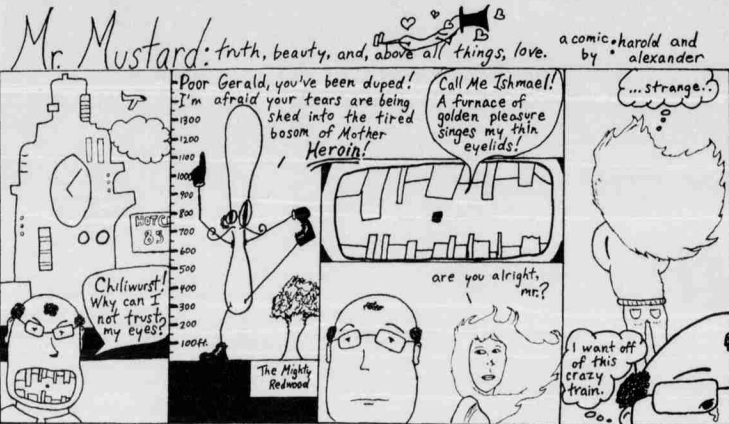 Mr. Mustard: truth, beauty, and, above all things, love.
a comic by: harold and alexander
HOTCH
85
Chiliwurst!
Why can I
not trust
my eyes?
Poor Gerald, you've been duped!
I'm afraid your tears are being
shed into the tired
bosom of Mother
Heroin!
1300
1200
1100
1000
900
800
700
600
500
400
300
200
100ft.
The Mighty
Redwood
Call Me Ishmael!
A furnace of
golden pleasure
singes my thin
eyelids!
are you alright,
mr.?
...strange..
I want off
of this
crazy
train.